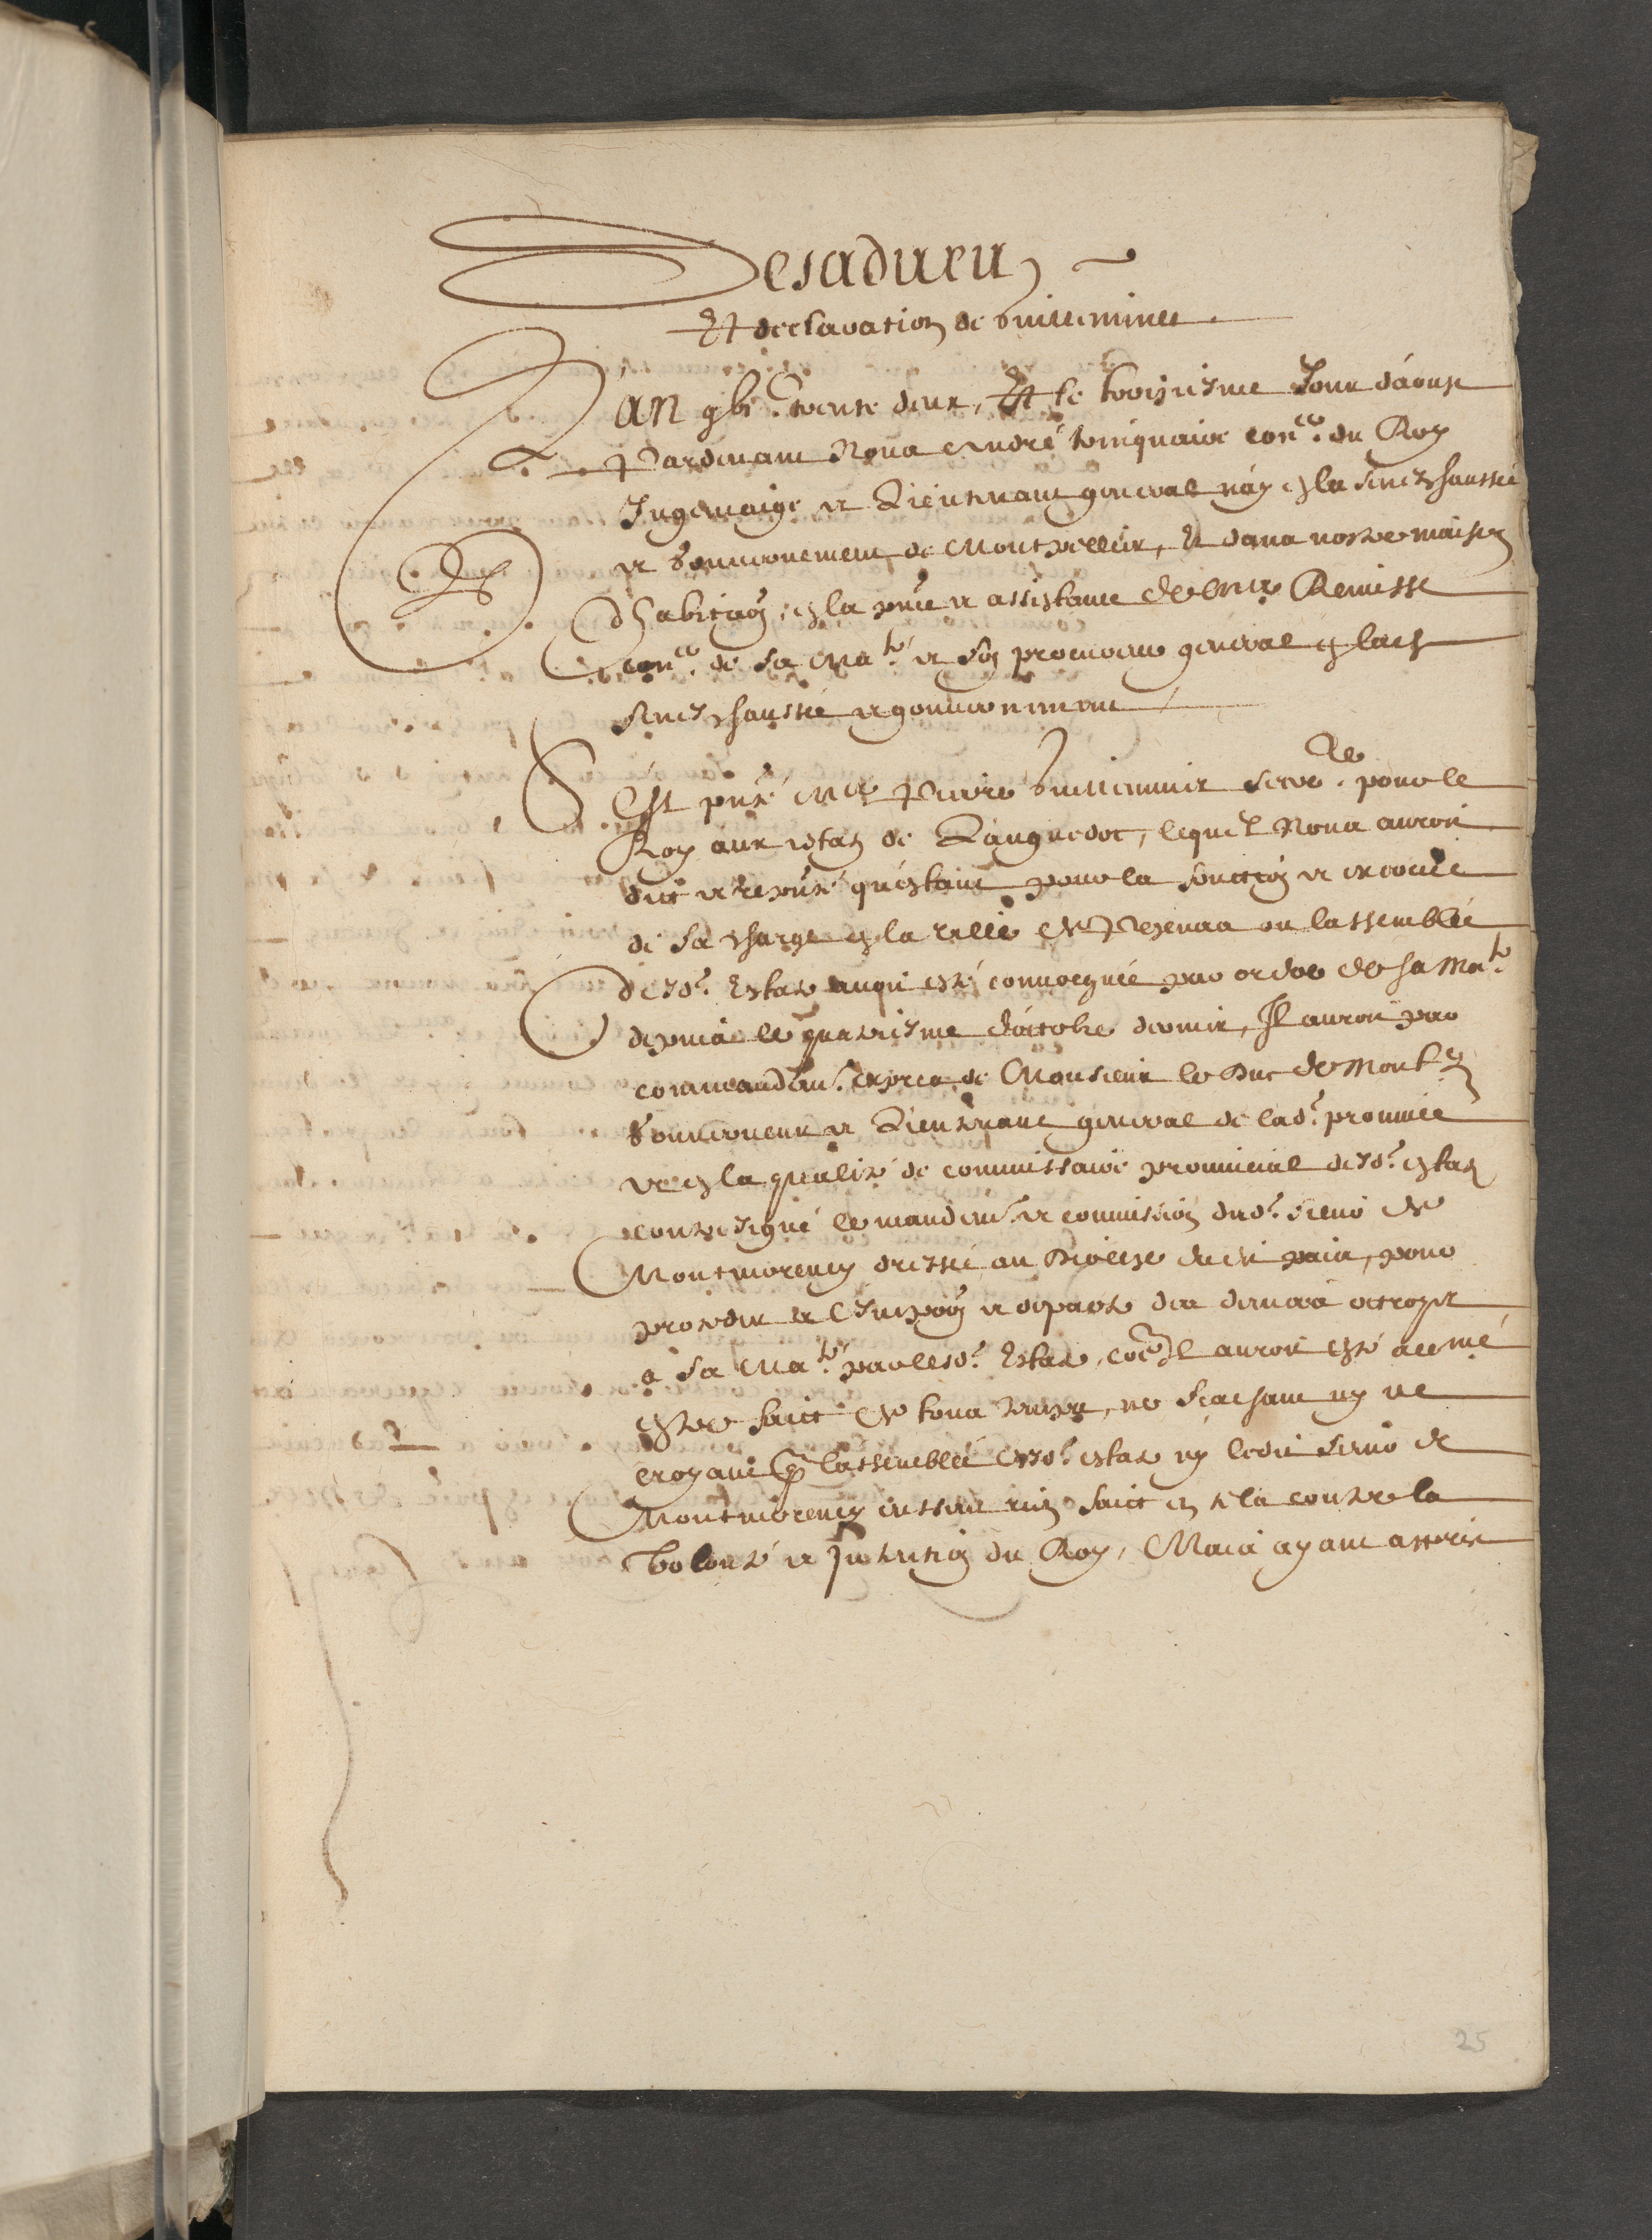 Desadueu
Et declaration de Guilleminet
L'an gbjc. trente deux, Et le troisiesme Jour d'aoust
Pardeuant Nous André trinquaire conler. du Roy
Jugemaige et Lieutenant general nay en la seneschaussée
et Gouuernement de Montpellier, Et dans nostre maison
d'habita͠on, en la pn̄ce et assistance de mre Remisse
conler. de sa Mate. et son procureur general en lad
seneschaussée et gouuernement
S'Est pn̄té Me Pierre Guilleminet secrere. pour le
Roy aux estatz de Languedoc, lequel Nous auroit
dict et repn̄té qu'estant pour la fonction et exercice
de sa charge en la ville de Pezenas ou lassemblée
desd. Estatz auoit esté conuocquée par ordre de sa Mate.
depuis le quatriesme d'octobre dernier, Il auroit par
commandemt. expres de Monsieur le Duc de Montcy
Gouuerneur et Lieutenant general de lad. prouince
et en la qualité de commissaire prouincial desd. estatz
contresigné le mandemt. et commission dud. sieur de
Montmorency dressée au Diocese de puis, pour
proceder a l'Impo͠on et depart des deniers octroyez
a sa Mate. par lesd. Estatz, co͠e Il auroit esté accou͠mé
estre faict de tous temps, ne sçachant ny ne
croyant q͠ lassemblée desd. estatz ny ledit sieur de
Montmorency eussent rien faict en cela contre la
Volonté et Intention du Roy, Mais ayant appris
25